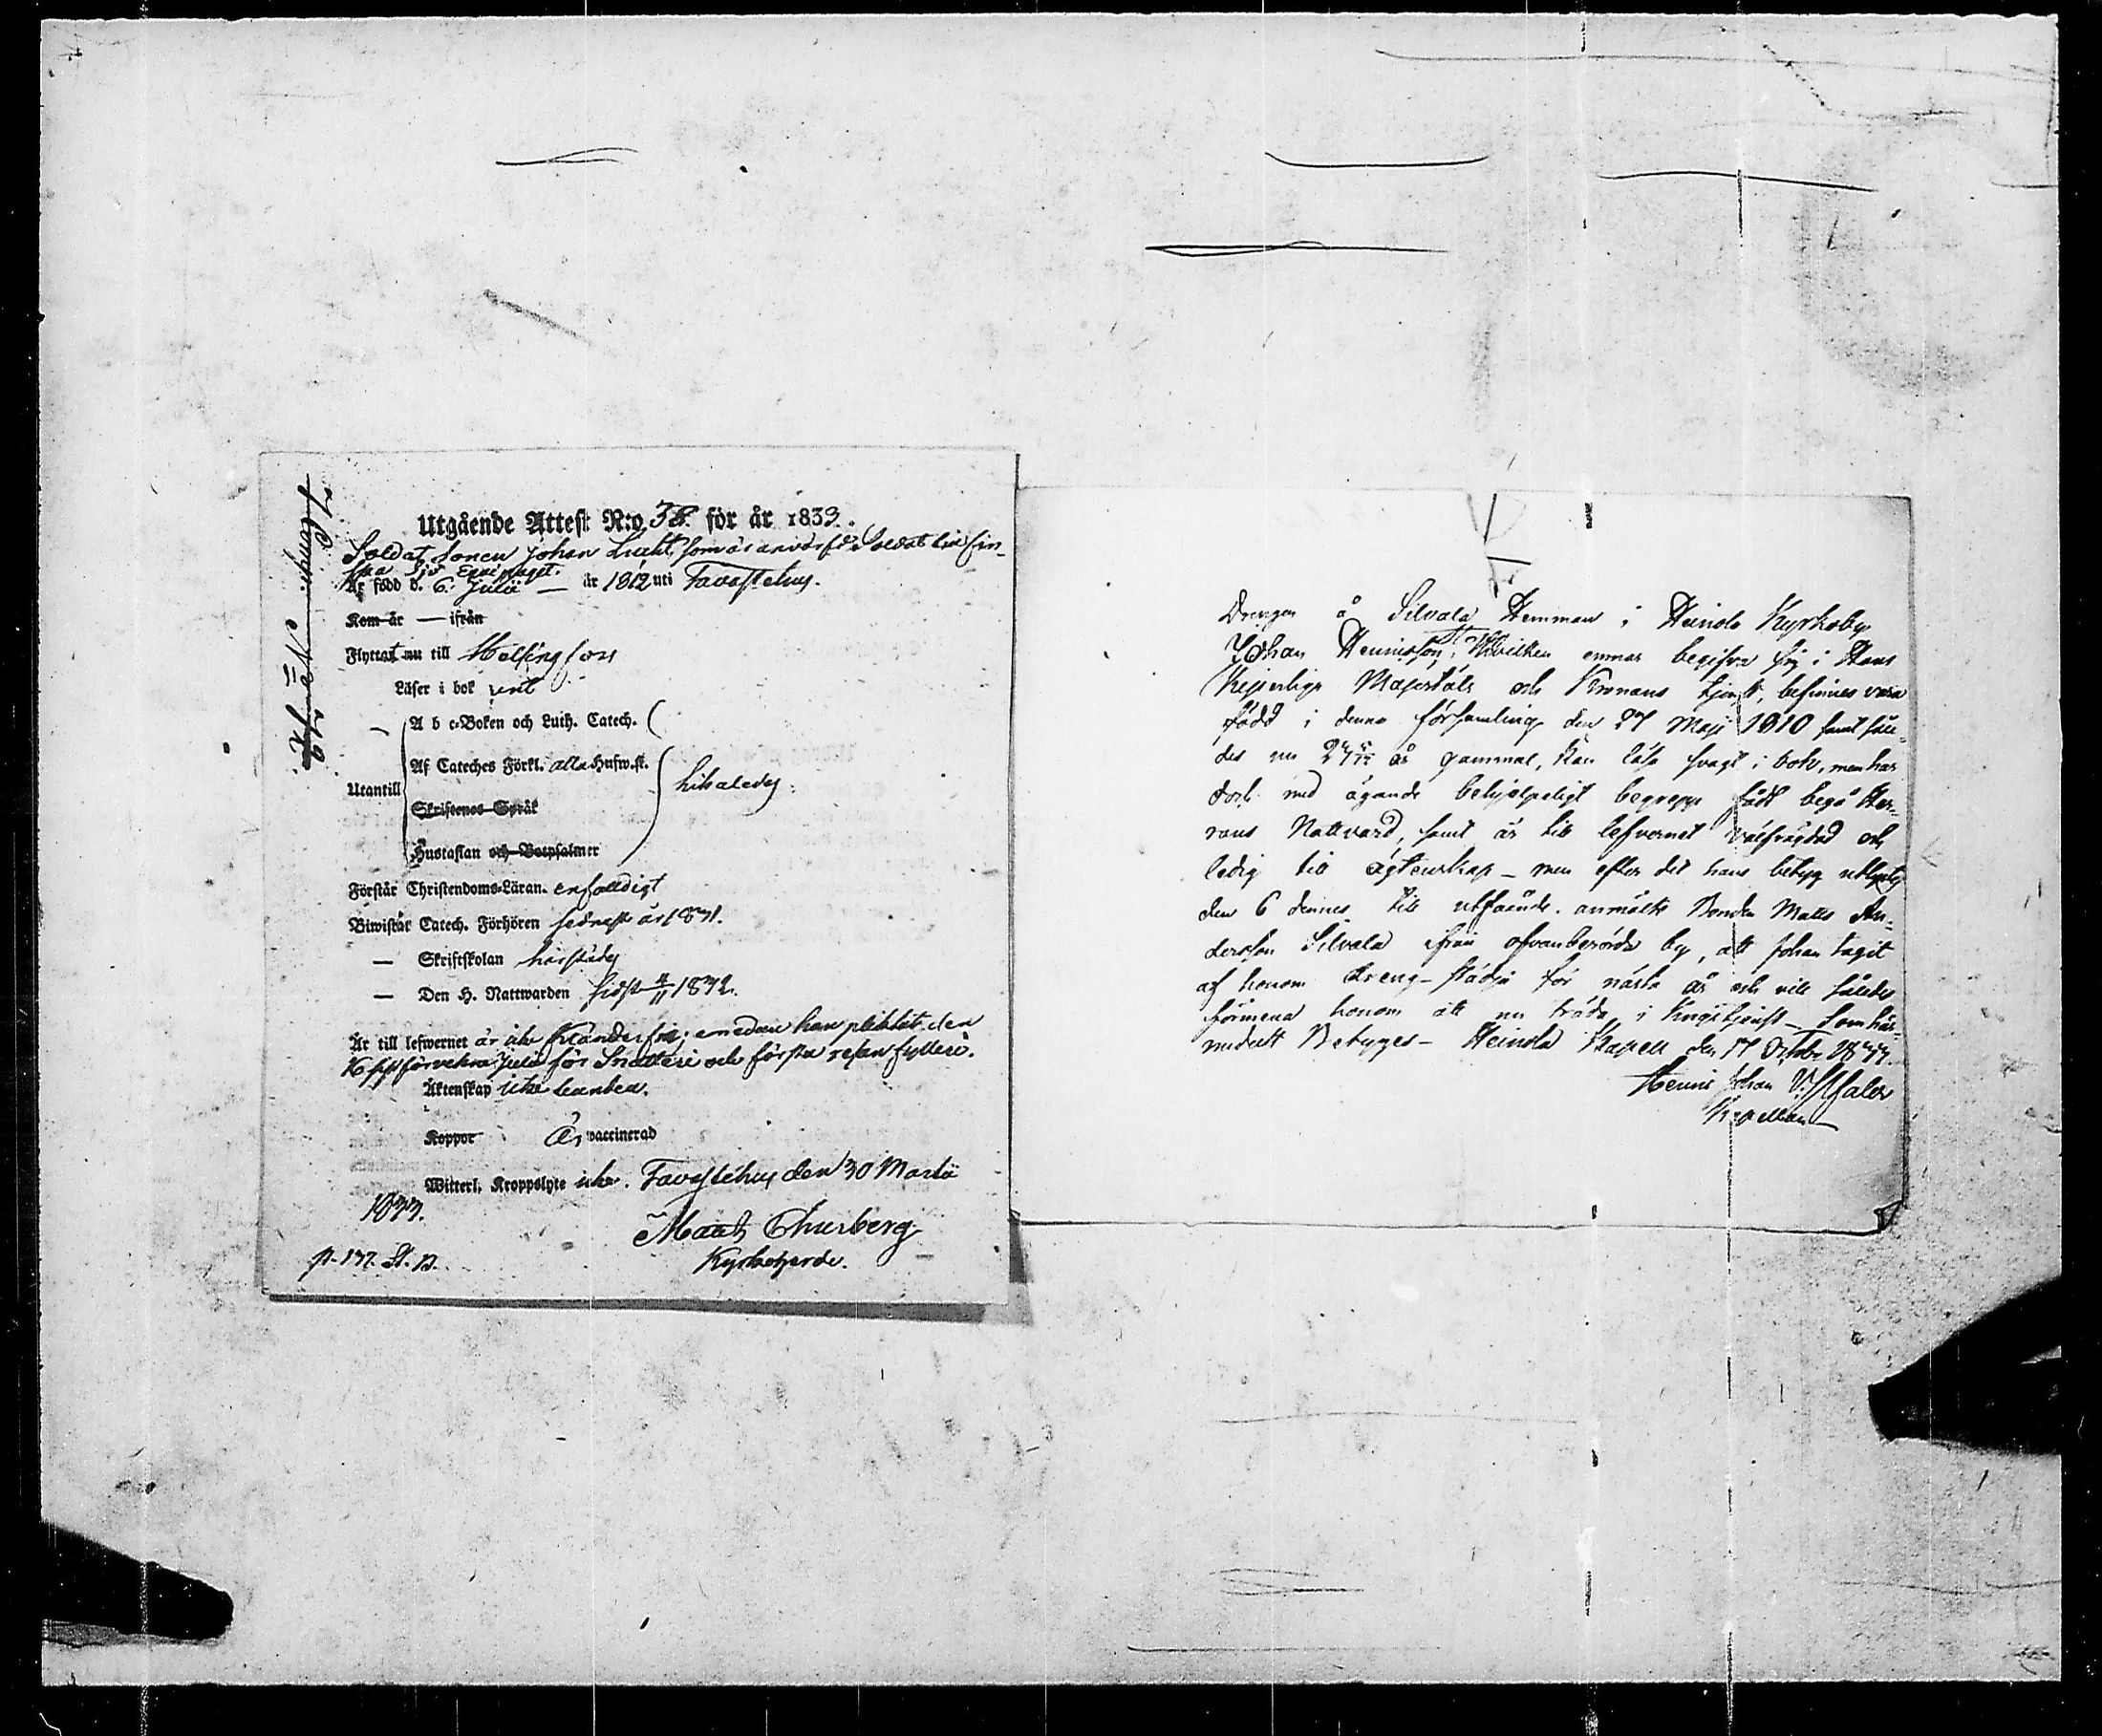 Utgående Attest N:o 38. för år 1833.
Soldat sonen Johan Lucht, som är anvärfd Soldat vid Fin-
ska Sjö Equipaget.
Är född d. 6. Julii — år 1812 uti Tavastehus.
Kom år — ifrån
Flyttat nu till Helsingfors
Läser i bok rent
A b c-Boken och Luth. Catech.
Af Cateches Förkl. alla Hufw.st.
Utantill likaledes.
Skriftenes Språk
Hustaflan och Botpsalmer
Förstår Christendoms-Läran. enfaldigt
Biwistat Catech. Förhören sednast år 1831.
— Skriftskolan härstädes
— Den H. Nattwarden sidst 4/11 1832.
Är till lefwernet är icke klanderfri; emedan han pliktat den
16 sistförvekne Julii för Snatteri och första resan fylleri.
Äktenskap icke bunden.
Koppor Är vaccinerad
Witterl. Kroppslyte icke. Tavastehus den 30 Martii
1833.
Churberg
Kyrkoherde.
p. 137. St. B.
Drengen å Silvala Hemman i Heinola Kyrkoby
Johan Henricsson, Hvilken ernar begifva sig i Hans
Kejserliga Majestäts och Kronans tjenst, befinnes vara
född i denna församling den 27 Maji 1810 samt såle-
des nu år gammal, kan läsa svagt i bok, men har
dock med ägande behjelpeligt begrepp fådt begå Her-
rans Nattvard, samt är till lefvernet välfrägdad och
ledig till ägtenskap – men efter det hans betyg utlystes
den 6 dennes till utfående. anmälte Bonden Matts An-
dersson Silvala ifrån ofvanberörde by, att Johan tagit
af honom dreng-städja för nästa år och vill således
förmena honom att nu träda i Krigstjenst – Som här-
medelst Betygas – Heinola Kapell den 17 October 1833.
Johan
Kapellan